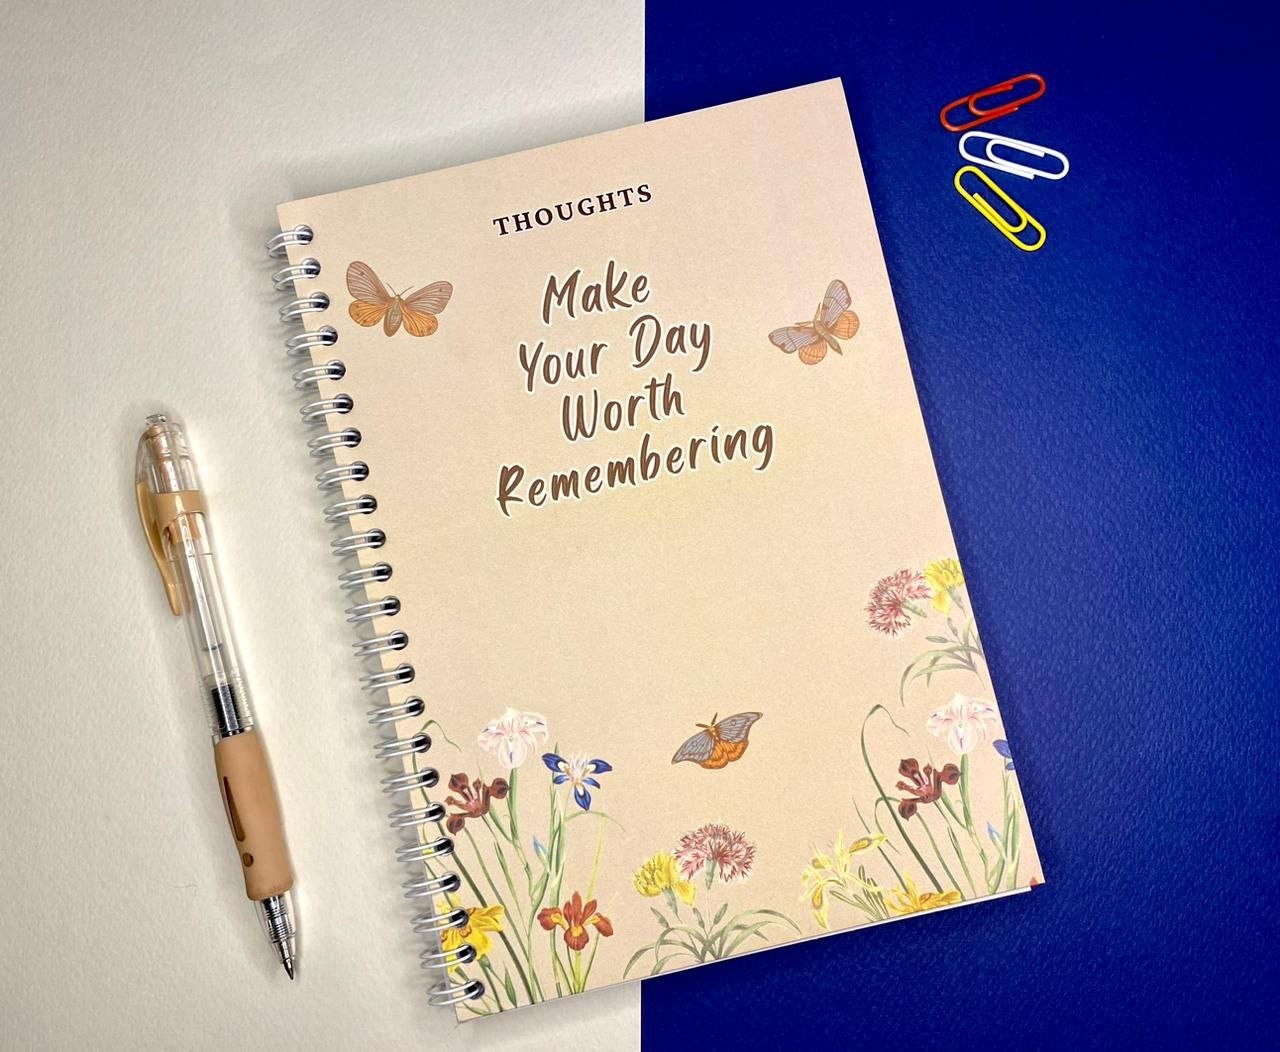 THOUGHTS
Make
Your Day
Worth
Remembering